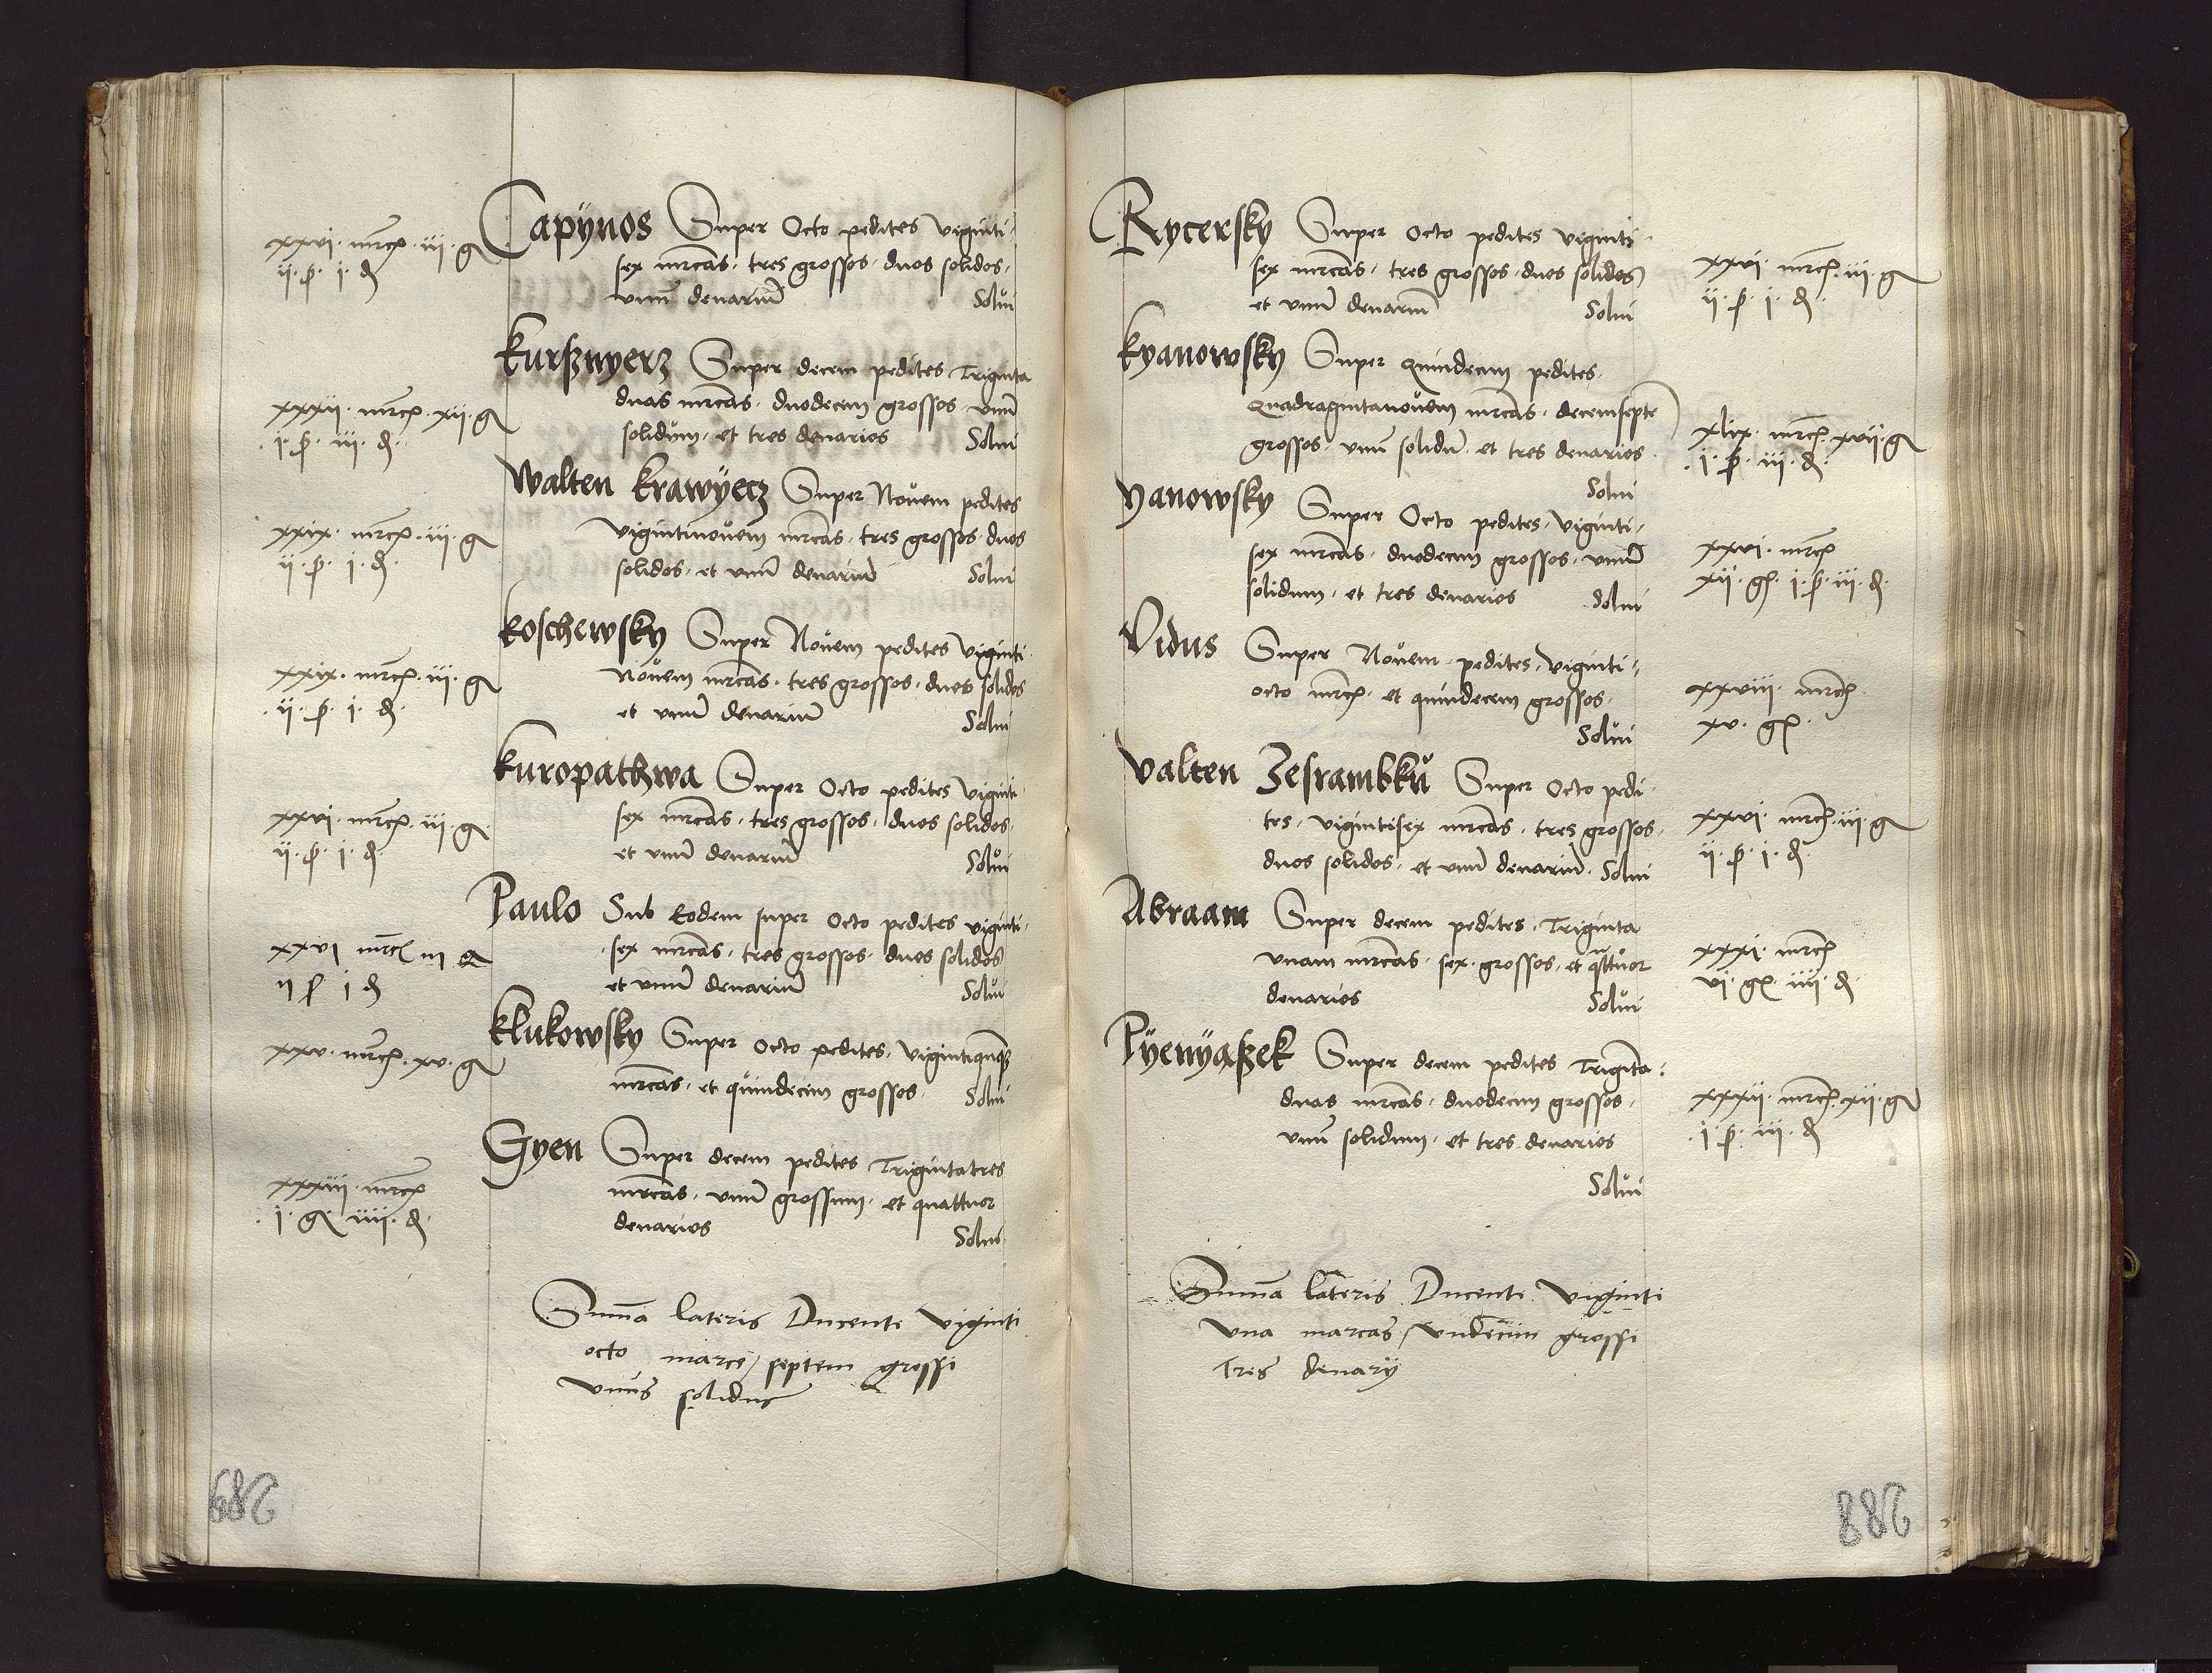 Capÿnos Super Octo pedites viginti
sex mrcas · tres grossos · duos solidos ·
unū denariū Solui
xxvi · mrcƺ · iii · g
ii · ꝭ · i · ₰
kurßnyerz Super decem pedites Triginta
duas mrcas · duodecim grossos · unū
solidum · et tres denarios Solui
xxxii · mrcƺ · xii · g
· i · ꝭ · iii · ₰ ·
Walten krawÿecz Super Nouem pedites
vigintinouem mrcas · tres grossos · duos
solidos · et unū denariū Solui
xxix · mrcƺ · iii · g
ii · ꝭ · i · ₰ ·
koschewsky Super Nouem pedites viginti
Nouem mrcas · tres grossos · duos solidos
et unū denariū Solui
xxix · mrcƺ · iii · g
· ii · ꝭ · i · ₰ ·
kuropathwa Super Octo pedites viginti
sex mrcas · tres grossos · duos solidos ·
et unū denariū Solui
xxvi · mrcƺ · iii · g
ii · ꝭ · i · ₰ ·
Paulo Sub Eodem super Octo pedites viginti ·
sex mrcas · tres grossos · duos solidos
et unū denariū Solui
xxvi mrcƺ iii g
ii ꝭ i ₰
klukowsky Super Octo pedites · vigintiquinqƺ
mrcas · et quindecim grossos · Solui
xxv · mrcƺ · xv · g
Gyen Super decem pedites Trigintatres
mrcas · unū grossum · et quattuor
denarios Solui
xxxiii · mrcƺ
· i · g · iiii · ₰ ·
Suma lateris Ducente viginti
octo marce / septem grossi
unus solidus
289
Rycersky Super Octo pedites viginti
sex mrcas · tres grossos · duos solidos
et unū denariū Solui
xxvi · mrcƺ · iii · g
ii · ꝭ · i · ₰ ·
kyanowsky Super Quindecim pedites ·
Quadragintanouem mrcas · decemsepte
grossos · unū solidū · et tres denarios
Solui
xlix · mrcƺ · xvii · g
· i · ꝭ · iii · ₰ ·
Yanowsky Super Octo pedites · viginti ·
sex mrcas · duodecim grossos · unū
solidum · et tres denarios Solui
xxvi · mrcƺ
xii · gƺ · i · ꝭ · iii · ₰ ·
Vidus Super Nouem pedites · viginti ·
octo mrcƺ · et quindecim grossos ·
Solui
xxviii · mrcƺ
xv · gƺ ·
Valten Zesrambku Super Octo pedi
tes · vigintisex mrcas · tres grossos ·
duos solidos · et unū denariū · Solui
xxvi · mrcƺ · iii · g
ii · ꝭ · i · ₰ ·
Abraam Super decem pedites · Triginta
unam mrcas · sex · grossos · et qttuor
denarios Solui
xxxi · mrcƺ
vi · gƺ · iiii · ₰ ·
Pÿenÿaßek Super decem pedites Triginta :
duas mrcas · duodecim grossos ·
unū solidum · et tres denarios
Solui
xxxii · mrcƺ · xii · g
· i · ꝭ · iii · ₰
Suma lateris Ducente viginti
una marcas / undecim grossi
Tres denarÿ
288